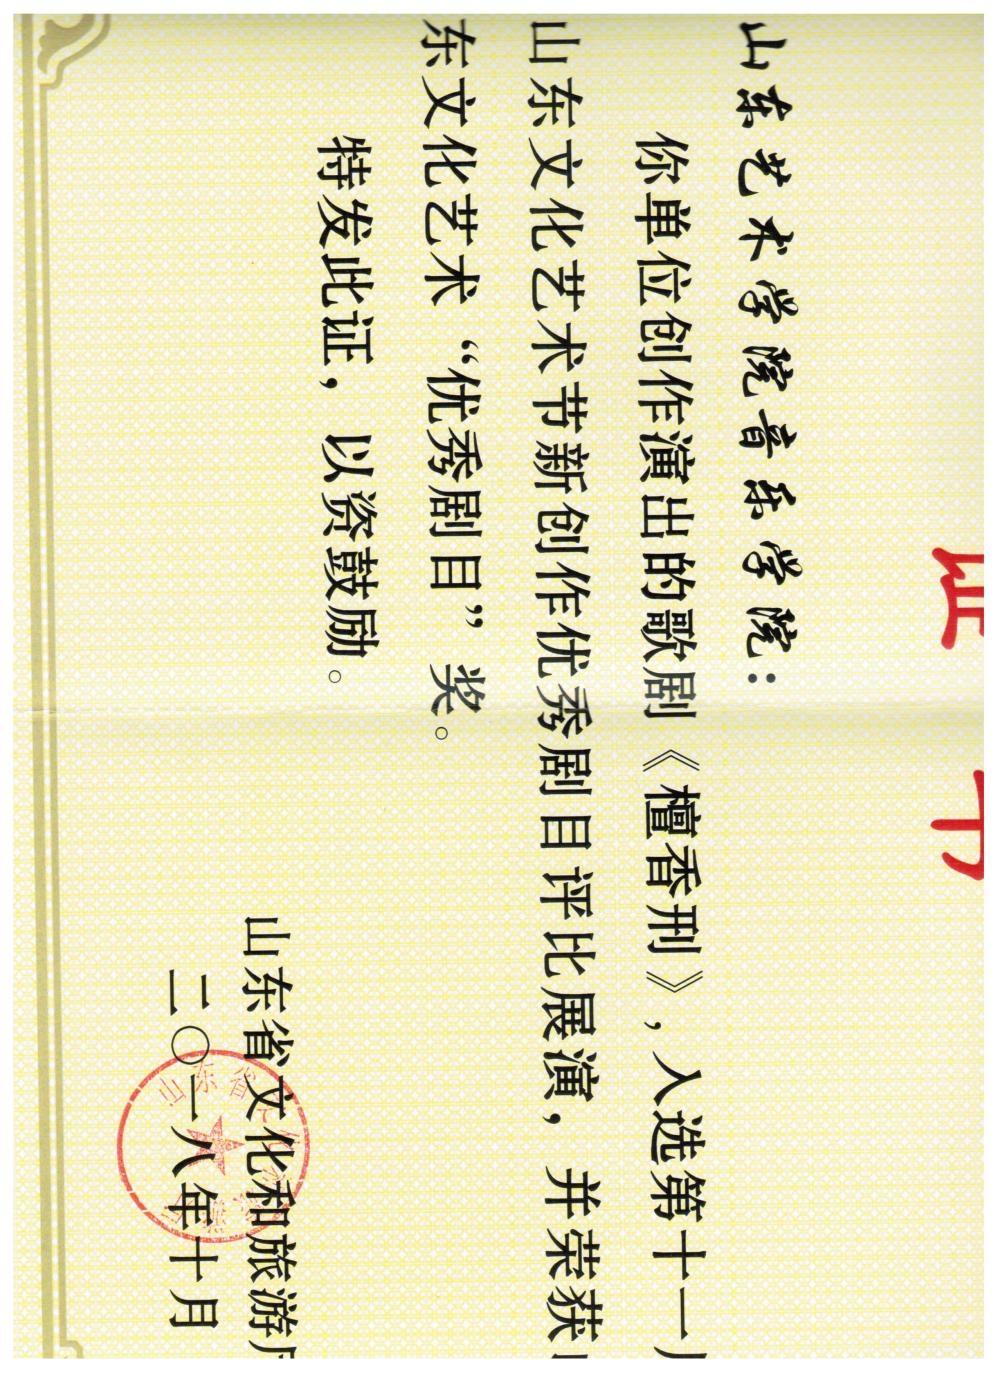 证书
山东艺术学院音乐学院：
你单位创作演出的歌剧《檀香刑》，入选第十一
山东文化艺术节新创作优秀剧目评比展演，并荣获
东文化艺术“优秀剧目”奖。
特发此证，以资鼓励。
山东省文化和旅游
二〇一八年十月
山东省